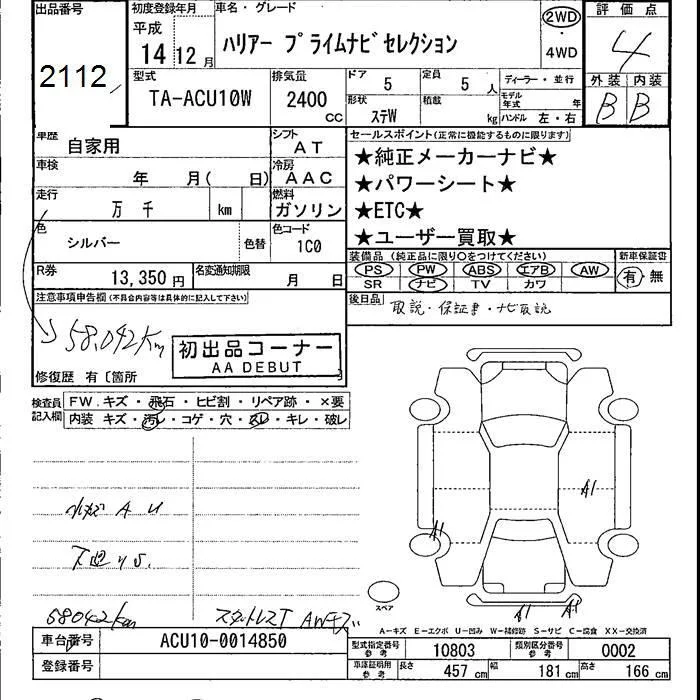 出品番号 初度登録年月 車名・グレード 評価点
2112 平成 14年 12月 ハリアー プライムナビセレクション 2WD・4WD 4
型式 排気量 ドア 定員 ディーラー・並行 外装 内装
TA-ACU10W 2400 CC 5 5人 モデル年式 年 B B
形状 ステW 積載 kg ハンドル 左・右
車歴 自家用 シフト AT セールスポイント(正常に機能するものに限ります)
車検 年 月( 日) 冷房 AAC ★純正メーカーナビ★
走行 万 千 km 燃料 ガソリン ★パワーシート★
★ETC★
色 シルバー 色替 色コード 1C0 ★ユーザー買取★
装備品 (純正品に限り○をつけてください) 新車保証書
R券 13,350円 名変通知期限 月 日 PS PW ABS エアB AW 有・無
SR ナビ TV カワ
注意事項申告欄 (不具合内容等は具体的に記入して下さい) 後日品 取説・保証書・ナビ取説
58,042Km 初出品コーナー
AA DEBUT
修復歴 有〔箇所
検査員記入欄 FW.キズ・飛石・ヒビ割・リペア跡・×要
内装 キズ・汚レ・コゲ・穴・スレ・キレ・破レ
A1
小キズ A U
A1
下廻りS.
スペア
58042Km スタットレスT AWキズ A1 A1
A-キズ E-エクボ U-凹み W-補修跡 S-サビ C-腐食 XX-交換済
車台番号 ACU10-0014850 型式指定番号 参考 10803 類別区分番号 参考 0002
登録番号 車庫証明用 参考 長さ 457 cm 幅 181 cm 高さ 166 cm